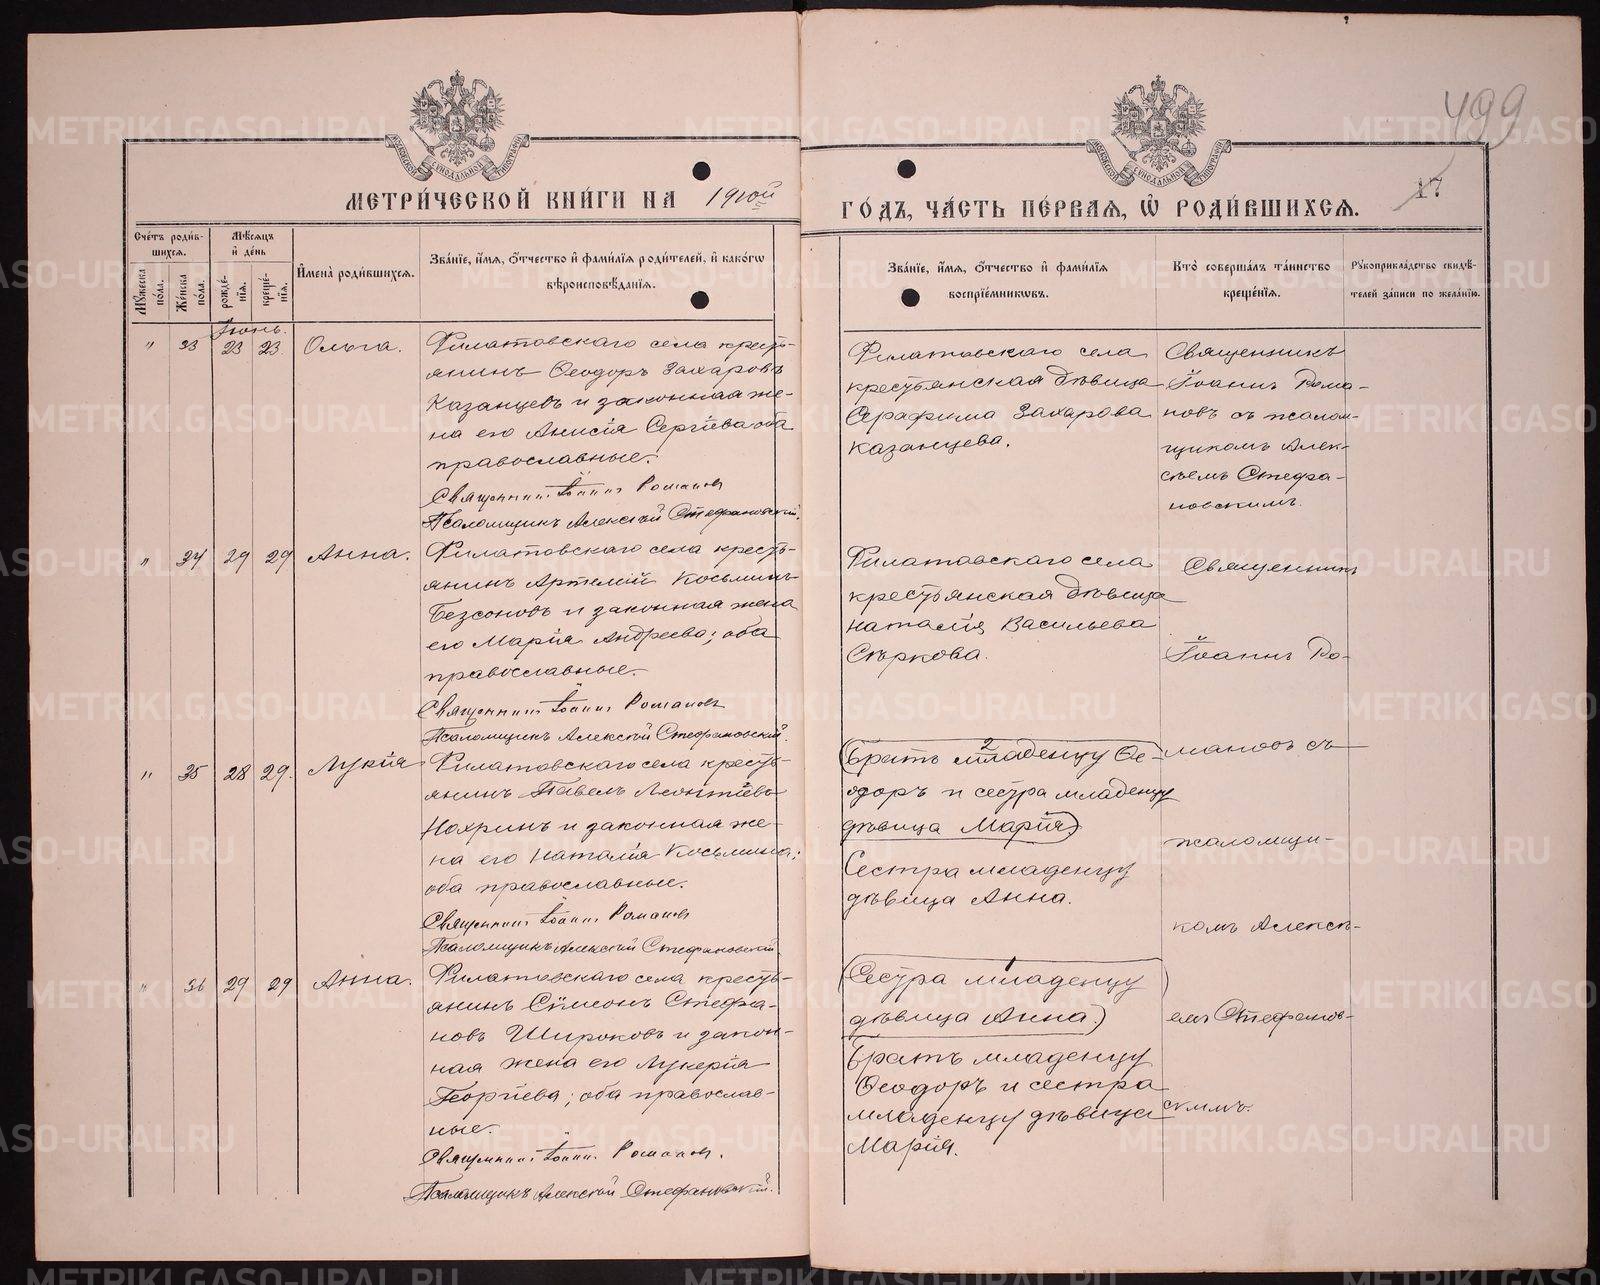 499
17
МЕТРИ́ЧЕСКОЙ КНИ́ГИ НА 1910й
ГО́ДЪ, ЧА́СТЬ ПЕ́РВАЯ, Ѡ РОДИ́ВШИХСЯ.
МОСКОВСКОЙ СѴНОДАЛЬНОЙ ТИПОГРАФІИ
МОСКОВСКОЙ СѴНОДАЛЬНОЙ ТИПОГРАФІИ
Сче́тъ роди́в-
шихся.
Мѣ́сяцъ
и҆ де́нь
Мꙋ́жеска по́ла.
Же́нска по́ла.
рожде́-
нїя.
креще́-
нїя.
И҆мена̀ роди́вшихся.
Зва́нїе, и҆́мя, ѻ҆́тчество и҆ фами́лїя роди́телей, и҆ како́гѡ
вѣроисповѣ́данїя.
Зва́нїе, и҆́мя, ѻ҆́тчество и҆ фами́лїя
воспрїе́мникѡвъ.
Кто̀ соверша́лъ та́инство
креще́нїя.
Рꙋкоприкла́дство свидѣ́-
телей за́писи по жела́нїю.
Іюнь.
" 33 23 23 Ольга.
Филатовскаго села кресть-
янинъ Ѳеодоръ Захаровъ
Казанцевъ и законная же-
на его Анисія Сергіева оба
православные.
Священникъ Іоаннъ Романовъ
Псаломщикъ Алексѣй Стефановскій.
Филатовскаго села
крестьянская дѣвица
Серафима Захарова
Казанцева.
Священникъ
Іоаннъ Рома-
новъ съ псалом-
щикомъ Алек-
сѣемъ Стефа-
новскимъ.
" 34 29 29 Анна.
Филатовскаго села кресть-
янинъ Артемій Косьминъ
Безсоновъ и законная жена
его Марія Андреева; оба
православные.
Священникъ Іоаннъ Романовъ
Псаломщикъ Алексѣй Стефановскій.
Филатовскаго села
крестьянская дѣвица
Наталія Васильева
Сѣркова.
Священникъ
Іоаннъ Ро-
" 35 28 29. Лукія
Филатовскаго села кресть-
янинъ Павелъ Леонтіевъ
Нохринъ и законная же-
на его Наталія Косьмина;
оба православные.
Священникъ Іоаннъ Романовъ
Псаломщикъ Алексѣй Стефановскій
2
(Братъ младенцу Ѳе-
одоръ и сестра младенцу
дѣвица Марія)
Сестра младенцу
дѣвица Анна.
мановъ съ
псаломщи-
комъ Алексѣ-
" 36 29 29 Анна.
Филатовскаго села кресть-
янинъ Сѵмеонъ Стефа-
новъ Широковъ и закон-
ная жена его Лукерія
Георгіева; оба православ-
ные.
Священникъ Іоаннъ Романовъ.
Псаломщикъ Алексѣй Стефановскій.
1
(Сестра младенцу
дѣвица Анна.)
Братъ младенцу
Ѳеодоръ и сестра
младенцу дѣвица
Марія.
емъ Стефанов-
скимъ.
METRIKI.GASO-URAL.RU